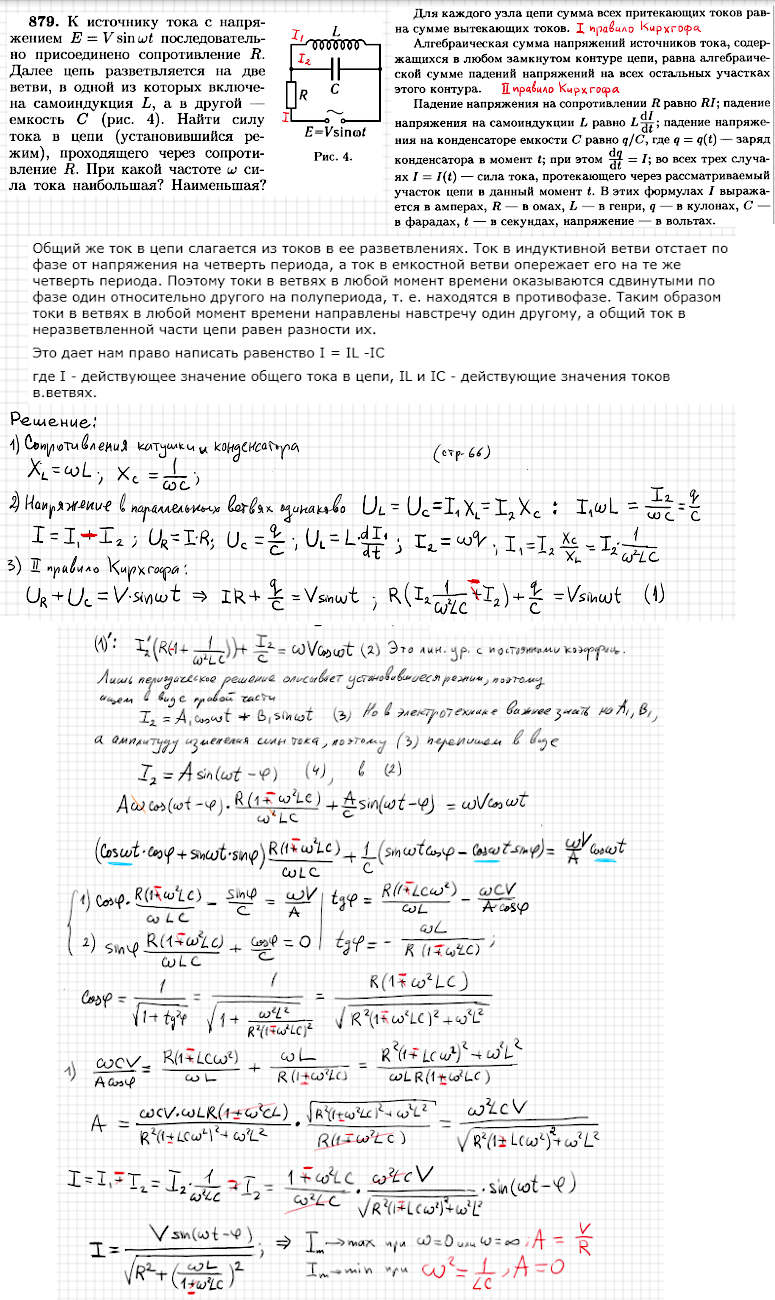 879. К источнику тока с напря-
жением E = V sin ωt последователь-
но присоединено сопротивление R.
Далее цепь разветвляется на две
ветви, в одной из которых включе-
на самоиндукция L, а в другой —
емкость C (рис. 4). Найти силу
тока в цепи (установившийся ре-
жим), проходящего через сопроти-
вление R. При какой частоте ω си-
ла тока наибольшая? Наименьшая?
I₁ L
I₂
C
R
I
E=Vsinωt
Рис. 4.
Для каждого узла цепи сумма всех притекающих токов рав-
на сумме вытекающих токов. I правило Кирхгофа
Алгебраическая сумма напряжений источников тока, содер-
жащихся в любом замкнутом контуре цепи, равна алгебраиче-
ской сумме падений напряжений на всех остальных участках
этого контура. II правило Кирхгофа
Падение напряжения на сопротивлении R равно RI; падение
напряжения на самоиндукции L равно L dI/dt; падение напряже-
ния на конденсаторе емкости C равно q/C, где q = q(t) — заряд
конденсатора в момент t; при этом dq/dt = I; во всех трех случа-
ях I = I(t) — сила тока, протекающего через рассматриваемый
участок цепи в данный момент t. В этих формулах I выража-
ется в амперах, R — в омах, L — в генри, q — в кулонах, C —
в фарадах, t — в секундах, напряжение — в вольтах.
Общий же ток в цепи слагается из токов в ее разветвлениях. Ток в индуктивной ветви отстает по
фазе от напряжения на четверть периода, а ток в емкостной ветви опережает его на те же
четверть периода. Поэтому токи в ветвях в любой момент времени оказываются сдвинутыми по
фазе один относительно другого на полупериода, т. е. находятся в противофазе. Таким образом
токи в ветвях в любой момент времени направлены навстречу один другому, а общий ток в
неразветвленной части цепи равен разности их.
Это дает нам право написать равенство I = IL -IC
где I - действующее значение общего тока в цепи, IL и IC - действующие значения токов
в.ветвях.
Решение:
1) Сопротивления катушки и конденсатора (стр 66)
X_L = ωL; X_C = 1/ωC;
2) Напряжение в параллельных ветвях одинаково U_L = U_C = I₁X_L = I₂X_C : I₁ωL = I₂/ωC = q/C
I = I₁ + I₂; U_R = I·R; U_C = q/C; U_L = L·dI₁/dt; I₂ = ωq; I₁ = I₂ X_C/X_L = I₂·1/ω²LC
3) II правило Кирхгофа:
U_R + U_C = V·sinωt ⇒ IR + q/C = Vsinωt; R(I₂ 1/ω²LC ∓ I₂) + q/C = Vsinωt (1)
(1)': I₂'(R(∓1 + 1/ω²LC)) + I₂/C = ωVcosωt (2) Это лин. ур. с постоянными коэффиц.
Лишь периодическое решение описывает установившееся режим, поэтому
ищем в виде правой части
I₂ = A₁cosωt + B₁sinωt (3) Но в электротехнике важнее знать не A₁, B₁,
а амплитуду изменения силы тока, поэтому (3) перепишем в виде
I₂ = A sin(ωt − φ) (4), в (2)
Aωcos(ωt−φ)·R(1∓ω²LC)/ω²LC + A/C sin(ωt−φ) = ωVcosωt
(cosωt·cosφ + sinωt·sinφ) R(1∓ω²LC)/ωLC + 1/C (sinωt cosφ − cosωt sinφ) = ωV/A cosωt
1) cosφ·R(1∓ω²LC)/ωLC − sinφ/C = ωV/A | tgφ = R(1∓LCω²)/ωL − ωCV/Acosφ
2) sinφ R(1∓ω²LC)/ωLC + cosφ/C = 0 | tgφ = − ωL/R(1∓ω²LC);
cosφ = 1/√(1+tg²φ) = 1/√(1 + ω²L²/R²(1∓ω²LC)²) = R(1∓ω²LC)/√(R²(1∓ω²LC)² + ω²L²)
1) ωCV/Acosφ = R(1∓LCω²)/ωL + ωL/R(1∓ω²LC) = R²(1∓LCω²)² + ω²L²/ωLR(1∓ω²LC)
A = ωCV·ωLR(1∓ω²CL)/R²(1∓LCω²)² + ω²L² · √(R²(1∓ω²LC)² + ω²L²)/R(1∓ω²LC) = ω²LCV/√(R²(1∓LCω²)² + ω²L²)
I = I₁ ∓ I₂ = I₂·1/ω²LC ∓ I₂ = 1∓ω²LC/ω²LC · ω²LCV/√(R²(1∓LCω²)² + ω²L²) ·sin(ωt−φ)
I = Vsin(ωt−φ)/√(R² + (ωL/1∓ω²LC)²); ⇒ I_m → max при ω=0 или ω=∞, A = V/R
I_m → min при ω² = 1/LC, A=0